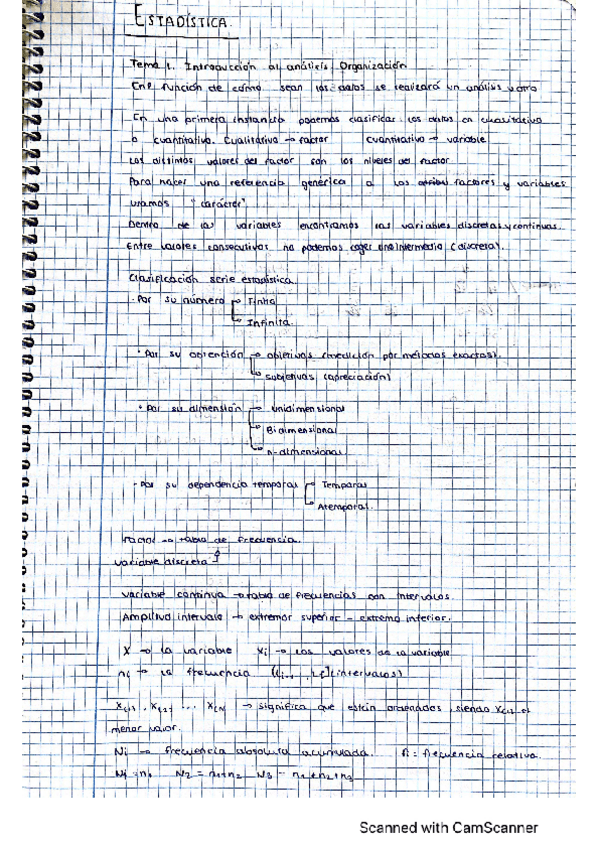 ESTADÍSTICA.
Tema 1. Introducción al análisis Organización
En función de cómo sean los datos se realizará un análisis u otro
En una primera instancia podemos clasificar los datos en cualitativo
o cuantitativo. Cualitativo → factor cuantitativo → variable
Los distintos valores del factor son los niveles del factor
Para hacer una referencia genérica a los factores y variables
usamos "carácter"
Dentro de las variables encontramos las variables discretas y continuas.
Entre valores consecutivos no podemos coger una intermedia (discreta).
Clasificación serie estadística.
· Por su número → Finita
→ Infinita.
· Por su obtención → objetivas (medición por métodos exactos).
→ subjetivas (apreciación)
· Por su dimensión → unidimensional
→ Bidimensional
→ n-dimensional.
· Por su dependencia temporal → Temporal
→ Atemporal.
Factor → tabla de frecuencia.
variable discreta ↑
variable continua → tabla de frecuencias con intervalos.
Amplitud intervalo → extremor superior - extremo inferior.
X → la variable xi → los valores de la variable
ni → la frecuencia (intervalos)
→ significa que están ordenados, siendo x(1) el
menor valor.
Ni → frecuencia absoluta acumulada. fi = frecuencia relativa.
N1 = n1 N2 = n1+n2 N3 = n1+n2+n3
Scanned with CamScanner